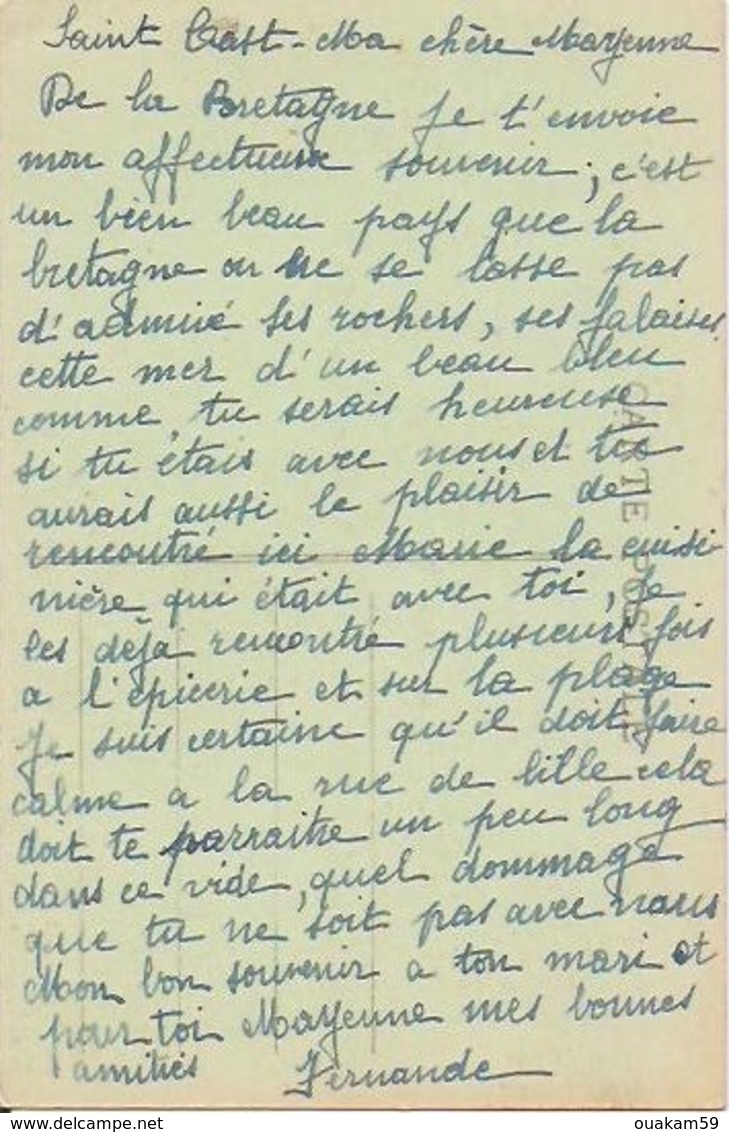 Saint Cast - Ma chère Mayenne
De la Bretagne je t'envoie
mon affectueux souvenir, c'est
un bien beau pays que la
bretagne on ne se lasse pas
d'admiré ses rochers, ses falaises,
cette mer d'un beau bleu
comme tu serais heureuse
si tu étais avec nous et tu
aurais aussi le plaisir de
rencontré ici Marie la cuisi
nière qui était avec toi, je
les déjà rencontré plusieurs fois
a l'épicerie et sur la plage
Je suis certaine qu'il doit faire
calme a la rue de lille cela
doit te parraitre un peu long
dans ce vide, quel dommage
que tu ne soit pas avec nous
Mon bon souvenir a ton mari et
pour toi Mayenne mes bonnes
amitiés Fernande
CARTE POSTALE
ouakam59